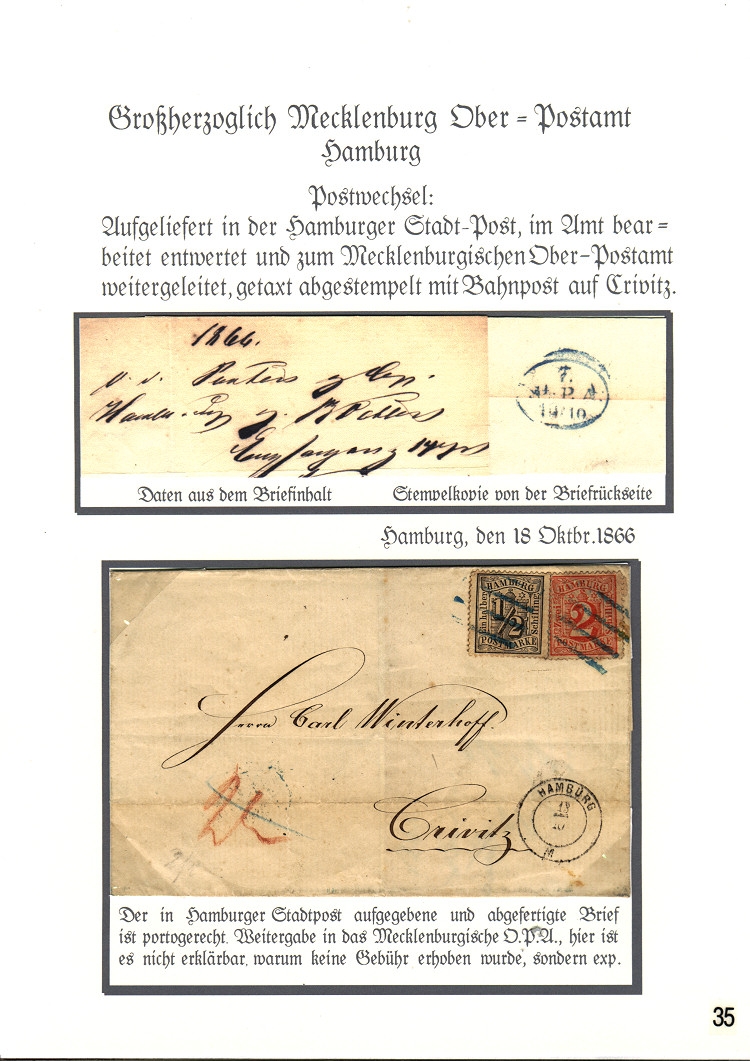 Großherzoglich Mecklenburg Ober = Postamt
Hamburg
Postwechsel:
Aufgeliefert in der Hamburger Stadt-Post, im Amt bear =
beitet entwertet und zum Mecklenburgischen Ober-Postamt
weitergeleitet, getaxt abgestempelt mit Bahnpost auf Crivitz.
1866.
19/10
Daten aus dem Briefinhalt
Stempelkopie von der Briefrückseite
Hamburg, den 18 Oktbr. 1866
HAMBURG
Einhalber
1/2
Schilling
POSTMARKE
HAMBURG
2
POSTMARKE
Herrn Carl Winterhoff.
Crivitz
HAMBURG
18
10
M
Der in Hamburger Stadtpost aufgegebene und abgefertigte Brief
ist portogerecht. Weitergabe in das Mecklenburgische O.P.A., hier ist
es nicht erklärbar, warum keine Gebühr erhoben wurde, sondern exp.
35